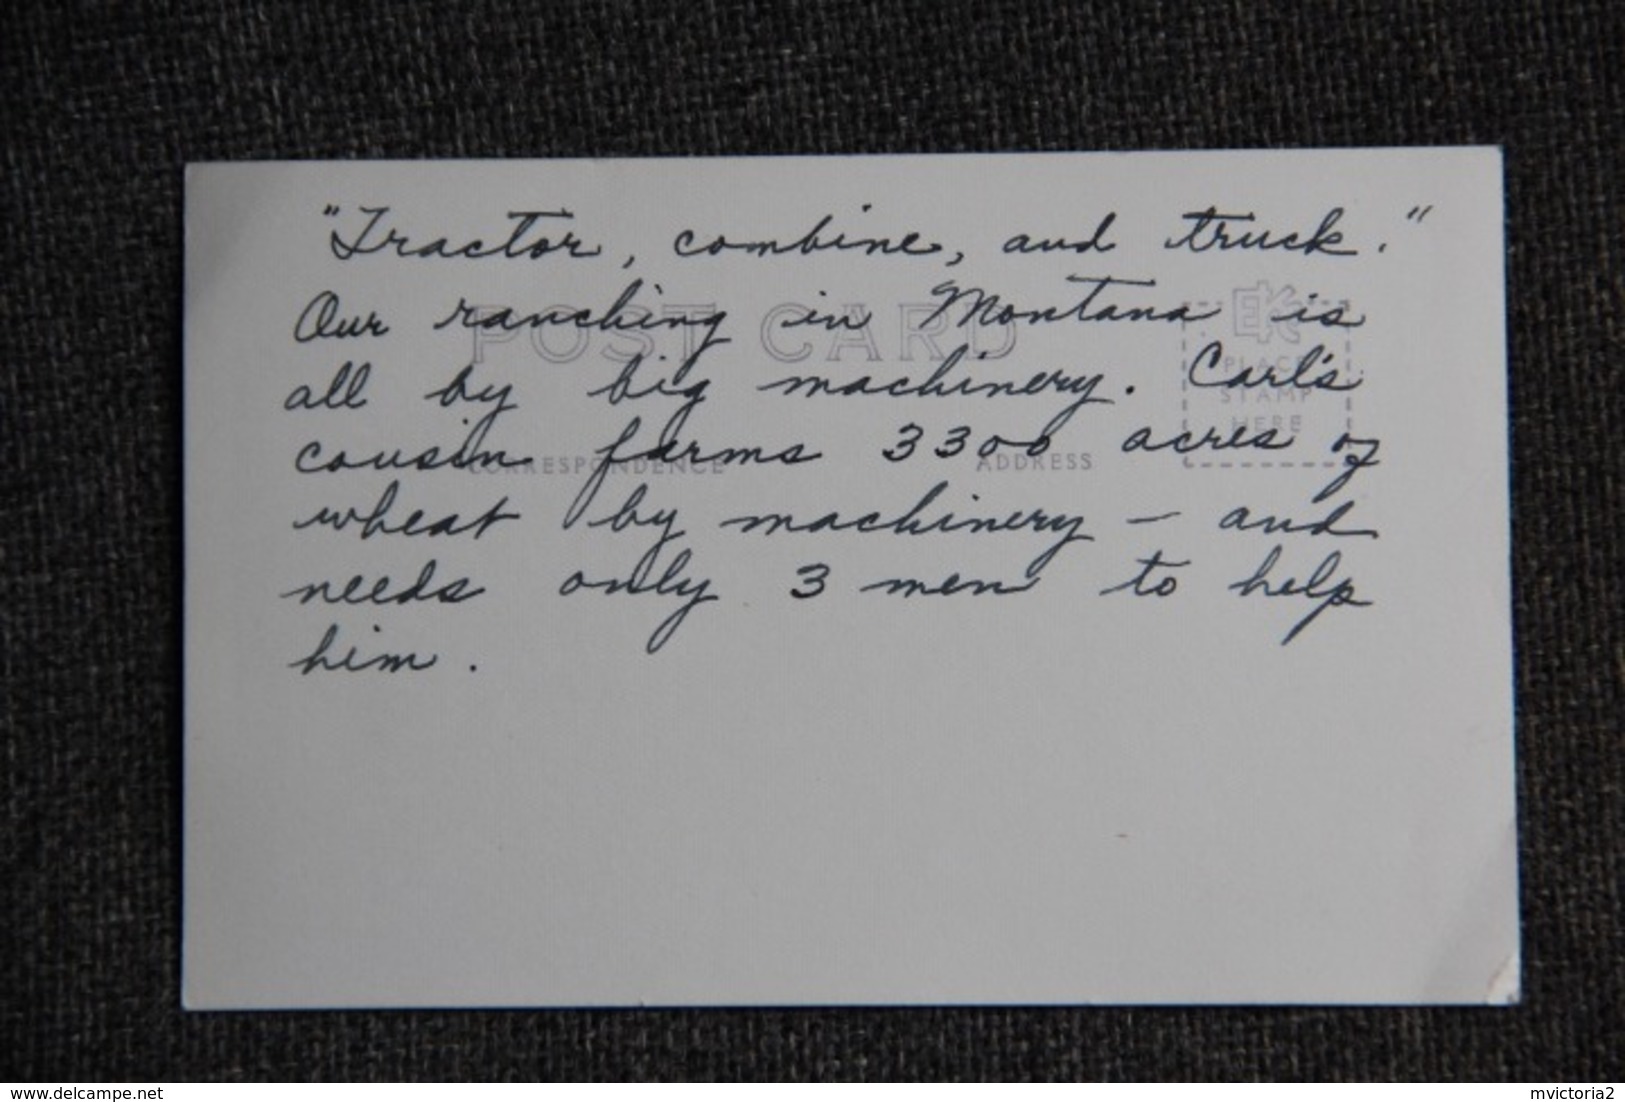 "Tractor, combine, and truck."
Our ranching in Montana is
all by big machinery. Carl's
cousin farms 3300 acres of
wheat by machinery – and
needs only 3 men to help
him.
POST CARD
EKC
PLACE
STAMP
HERE
CORRESPONDENCE
ADDRESS
www.delcampe.net
mvictoria2